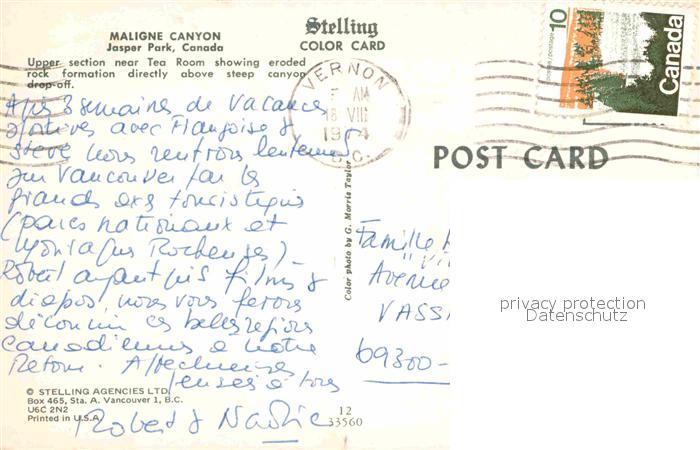 MALIGNE CANYON
Jasper Park, Canada
Upper section near Tea Room showing eroded
rock formation directly above steep canyon
drop-off.
Stelling
COLOR CARD
VERNON
AM
18 VIII
19 4
B.C.
10
Canada
POST CARD
Après 3 semaines de vacances
sportives avec Françoise &
Steve nous rentrons lentement
sur Vancouver par les
grands axes touristiques
(parcs nationaux et
Montagnes Rocheuses) -
Robert ayant pris films &
diapos, nous vous ferons
découvrir ces belles régions
canadiennes à notre
Retour. Affectueuses
pensées à tous
Robert & Nadie
Color photo by G. Morris Taylor
Famille
Avenue
VASS
69300-
privacy protection
Datenschutz
© STELLING AGENCIES LTD.
Box 465, Sta. A. Vancouver 1, B.C.
U6C 2N2
Printed in U.S.A.
12
33560